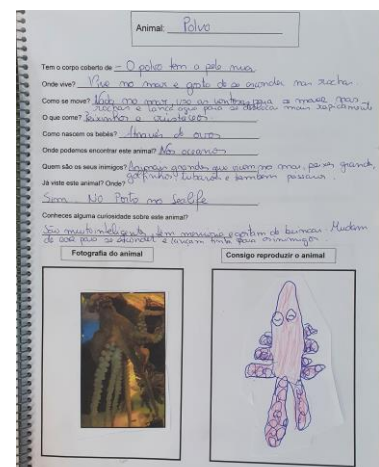 Animal: Polvo
Tem o corpo coberto de – O polvo tem a pele nua
Onde vive? Vive no mar e gosta de se esconder nas rochas.
Como se move? Nada no mar, usa as ventosas para se mover nas
rochas e lança água para se deslocar mais rapidamente
O que come? Peixinhos e crustáceos
Como nascem os bebés? Através de ovos
Onde podemos encontrar este animal? Nos oceanos
Quem são os seus inimigos? Animais grandes que vivem no mar, peixes grandes,
golfinhos, tubarões e também pássaros.
Já viste este animal? Onde?
Sim. No Porto no Sealife
Conheces alguma curiosidade sobre este animal?
São muito inteligentes, tem memória e gostam de brincar. Mudam
de cor para se esconder e lançam tinta para os inimigos.
Fotografia do animal
Consigo reproduzir o animal